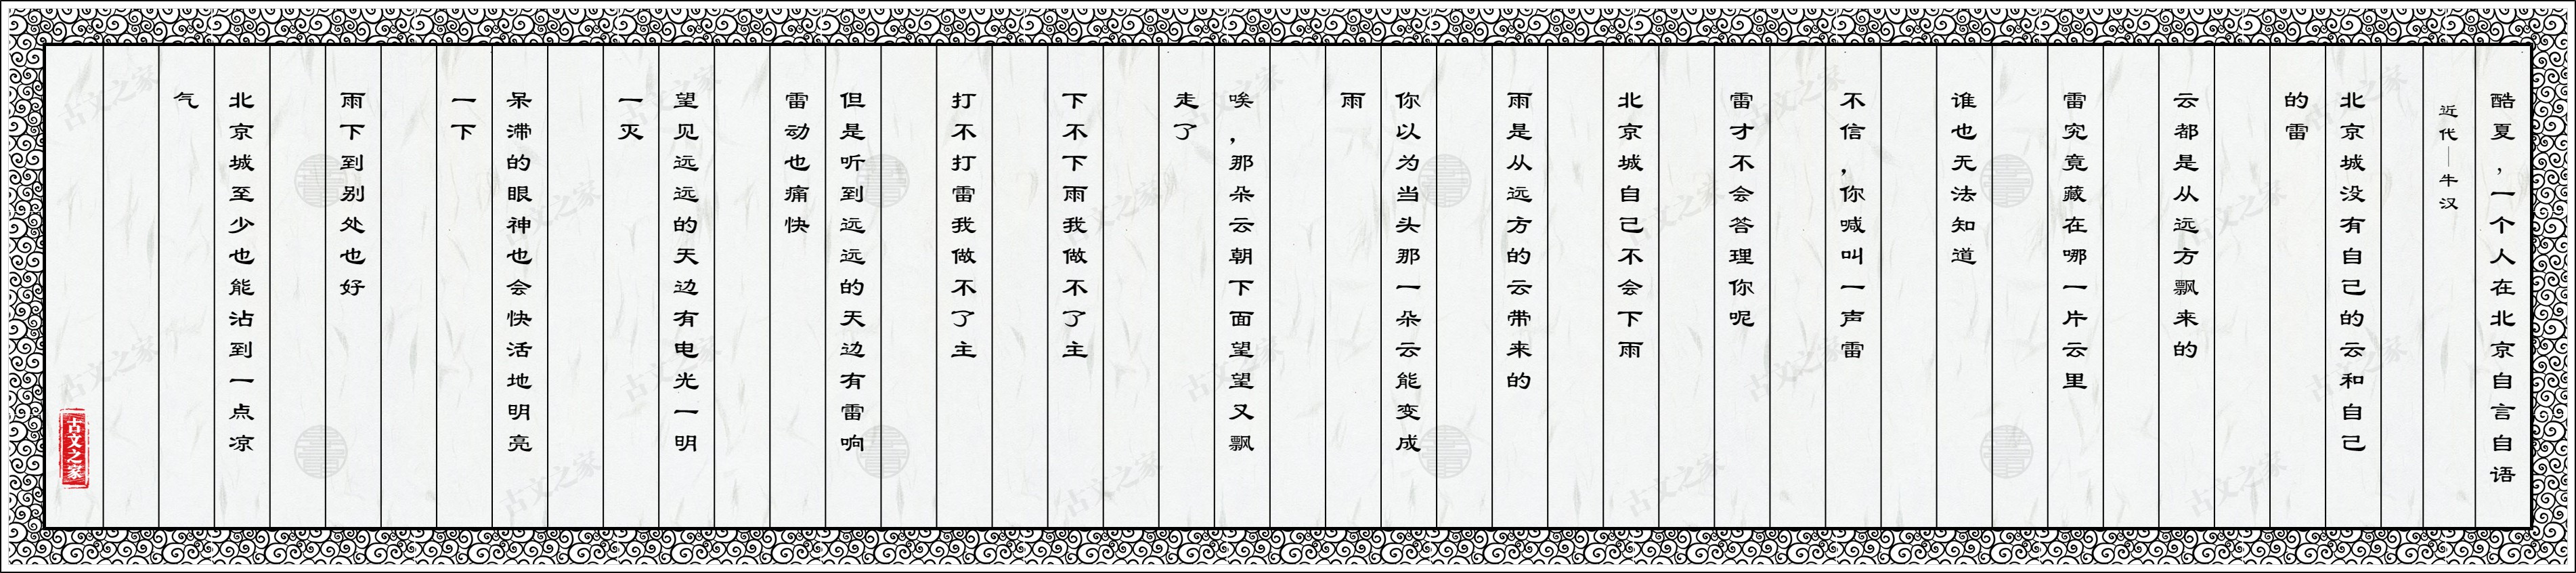 酷夏，一个人在北京自言自语
近代—牛汉
北京城没有自己的云和自己
的雷
云都是从远方飘来的
雷究竟藏在哪一片云里
谁也无法知道
不信，你喊叫一声雷
雷才不会答理你呢
北京城自己不会下雨
雨是从远方的云带来的
你以为当头那一朵云能变成
雨
唉，那朵云朝下面望望又飘
走了
下不下雨我做不了主
打不打雷我做不了主
但是听到远远的天边有雷响
雷动也痛快
望见远远的天边有电光一明
一灭
呆滞的眼神也会快活地明亮
一下
雨下到别处也好
北京城至少也能沾到一点凉
气
古文之家